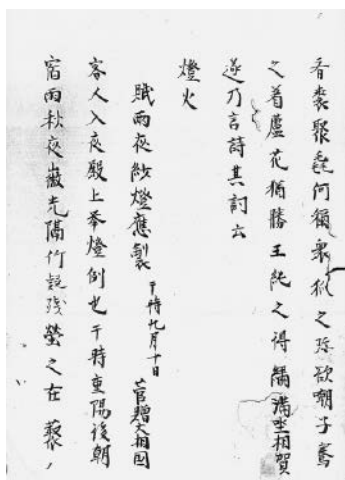 看裘聚毳何須衆狐之弥欲嘲子騫
之着蘆花猶勝王純之得繍満坐相賀
遂乃言詩其詞云
燈火
賦雨夜紗燈應製 于時九月十日 菅贈大相国
客人入夜殿上挙燈例也于時重陽後朝
宿雨秋夜微光隔竹疑残螢之在叢